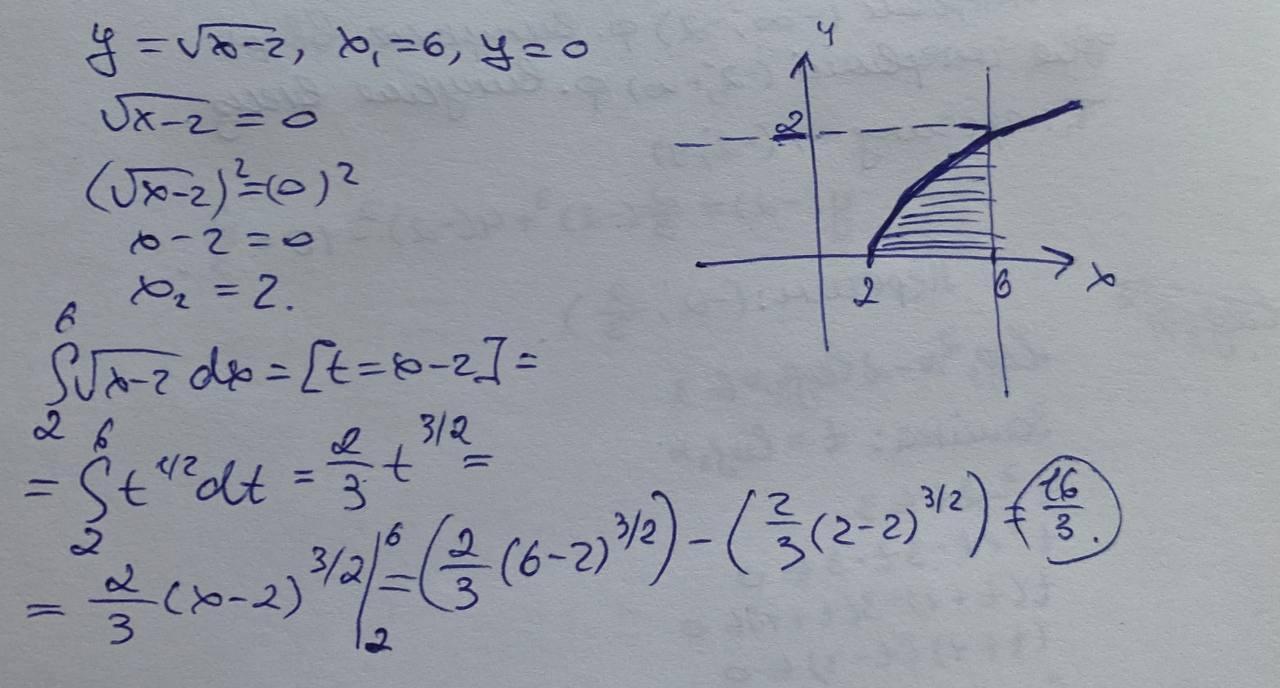 y = √x-2, x₁ = 6, y = 0
√x-2 = 0
(√x-2)² = (0)²
x - 2 = 0
x₂ = 2.
∫₂⁶ √x-2 dx = [t = x - 2] =
= ∫₂⁶ t^1/2 dt = 2/3 t^3/2 =
= 2/3 (x-2)^3/2 |₂⁶ = (2/3 (6-2)^3/2) - (2/3 (2-2)^3/2) = 16/3.
y
2
2
6
x